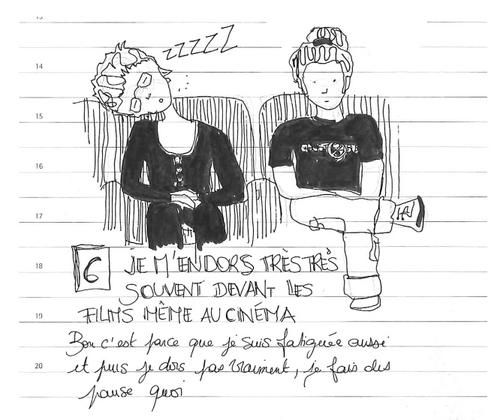 13
zzzzz
14
15
16
17
18
6 JE M'ENDORS TRÈS TRÈS
SOUVENT DEVANT LES
19
FILMS MÊME AU CINÉMA
Bon c'est parce que je suis fatiguée aussi
20
et puis je dors pas vraiment, je fais des
pause quoi